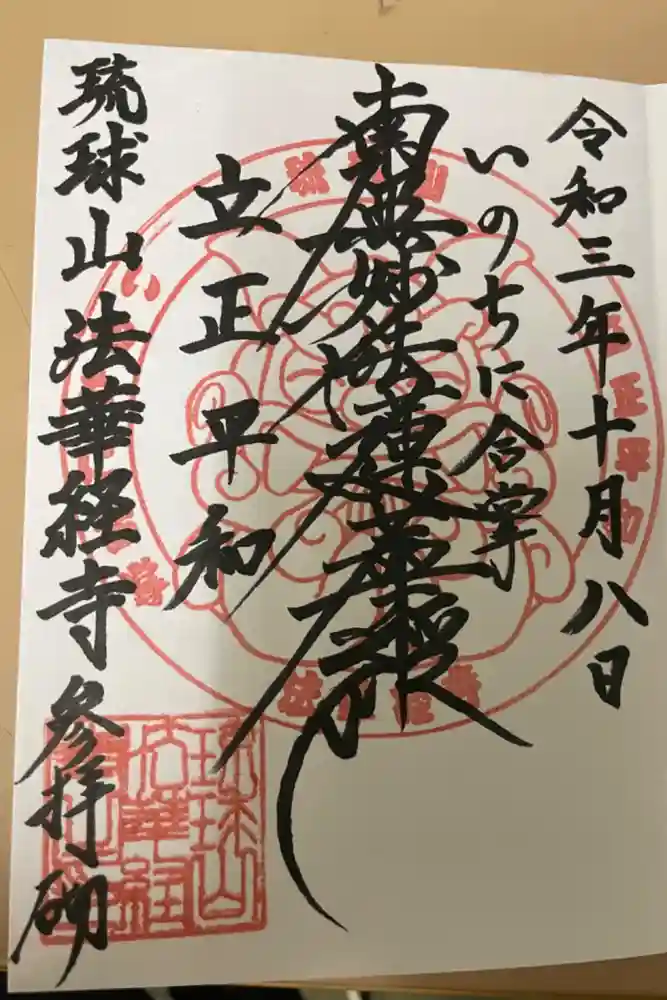 令和三年十月八日
いのちに合掌
南無妙法蓮華経
立正平和
琉球山法華経寺参拝
琉球山
法華経